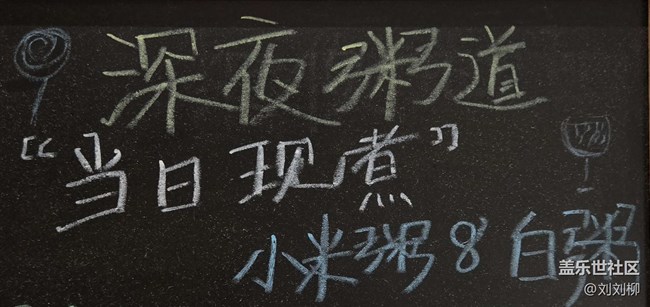 深夜粥道
“当日现煮”
小米粥 & 白粥
盖乐世社区
@刘刘柳